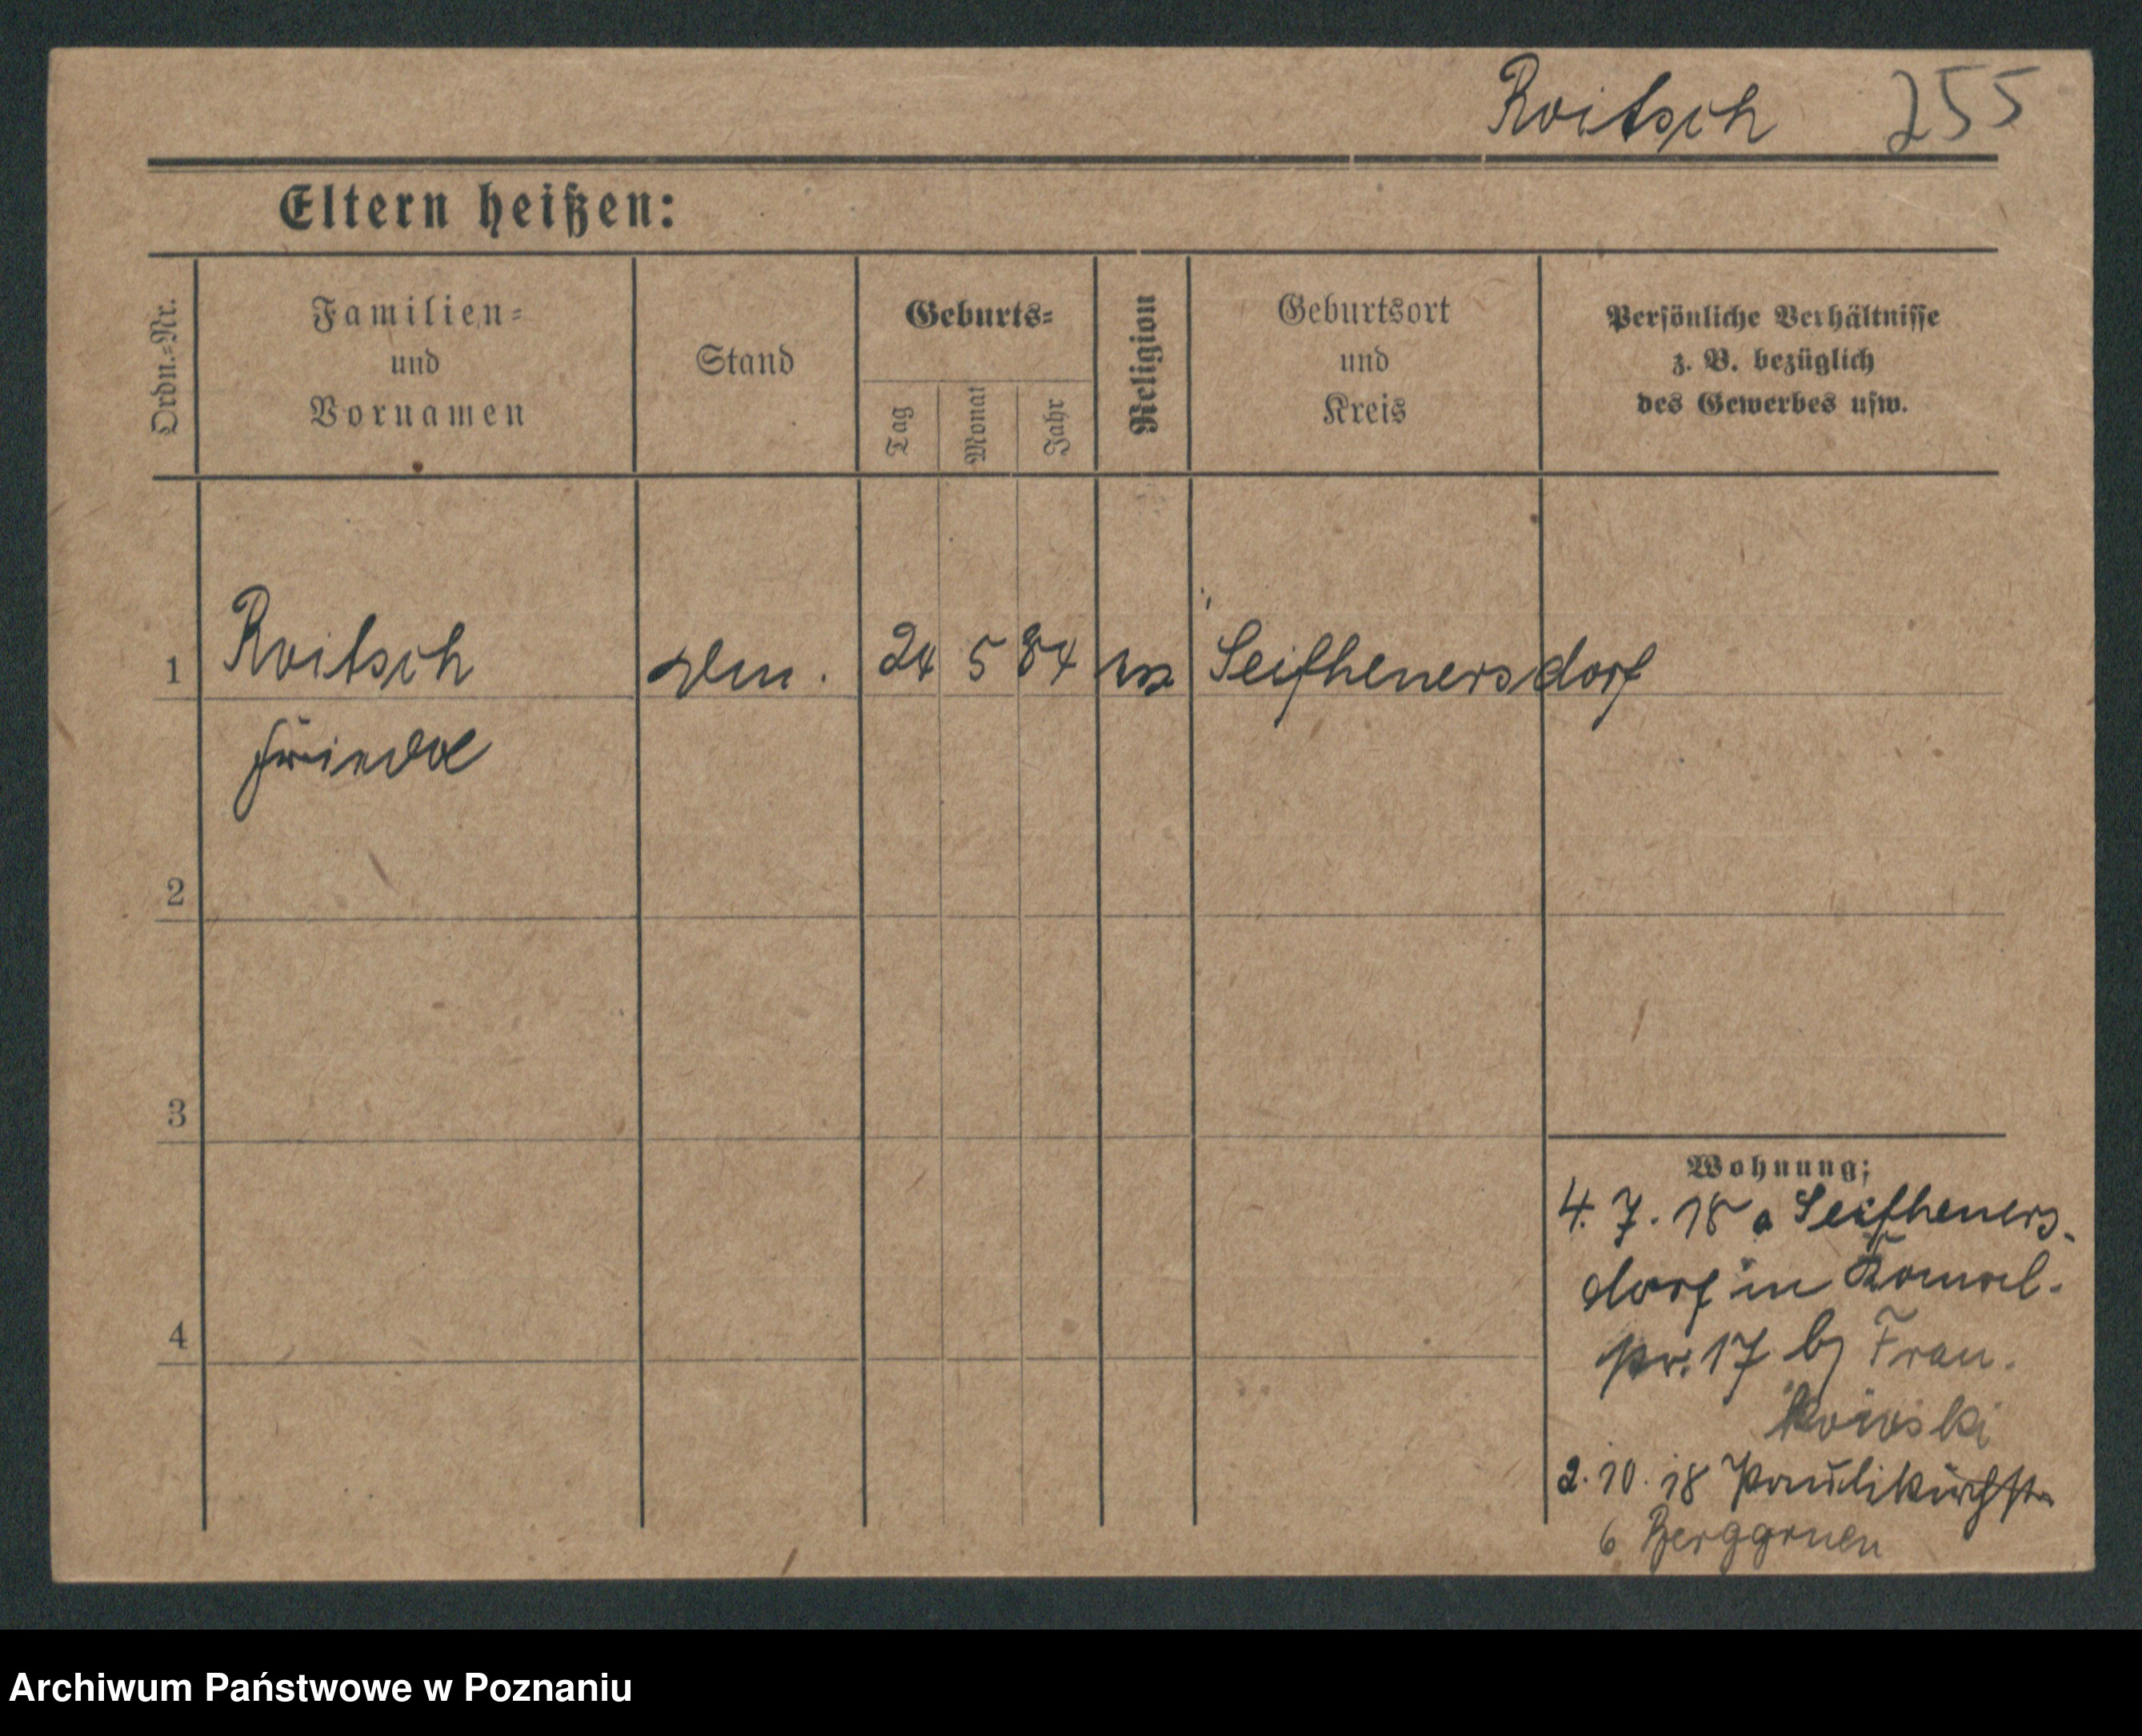 Roitsch 255
Eltern heißen:
Ordn.=Nr.
Familien=
und
Vornamen
Stand
Geburts=
Tag
Monat
Jahr
Religion
Geburtsort
und
Kreis
Persönliche Verhältnisse
z. B. bezüglich
des Gewerbes usw.
1 Roitsch 24 5 84 Seifhenersdorf
2
3
4
Wohnung:
4. 7. 18 a Seifheners-
dorf in
pr. 17 bj Fran.
kowski
2. 10. 18 Paulikirchstr
6 Berggruen
Archiwum Państwowe w Poznaniu